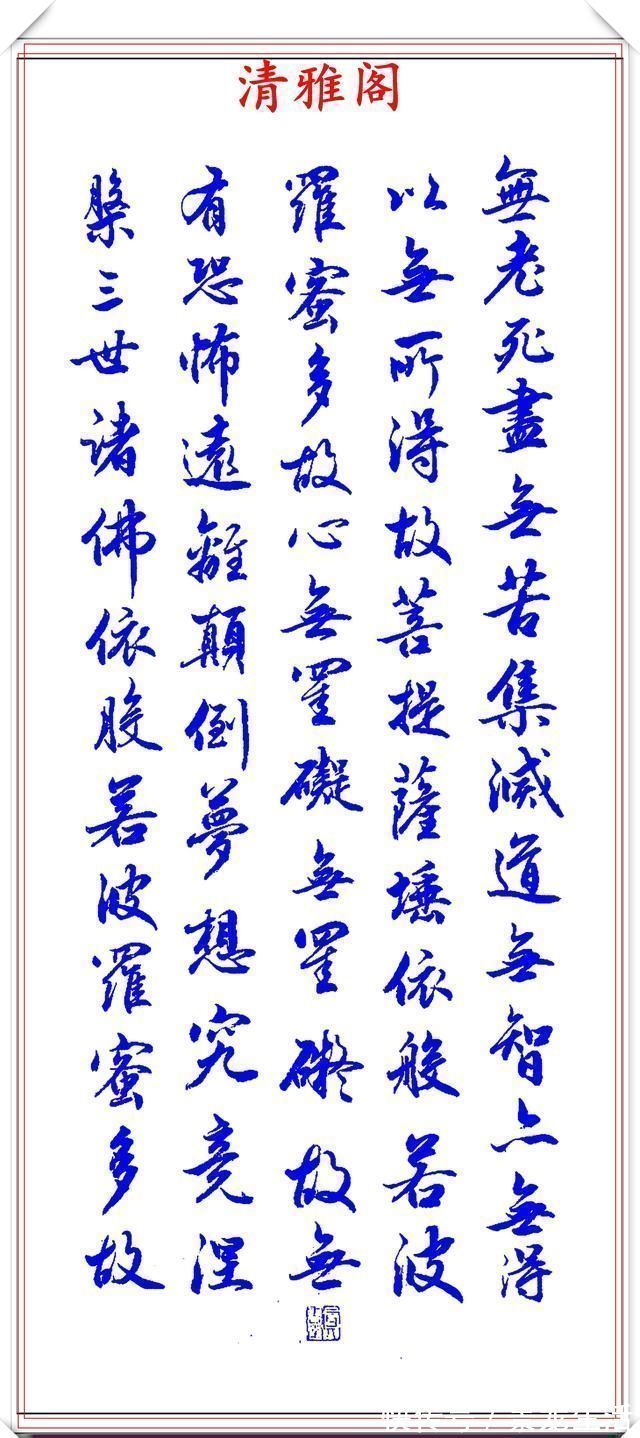 清雅阁
無老死盡無苦集滅道無智亦無得
以無所得故菩提薩埵依般若波
羅蜜多故心無罣礙無罣礙故無
有恐怖遠離顛倒夢想究竟涅
槃三世諸佛依般若波羅蜜多故